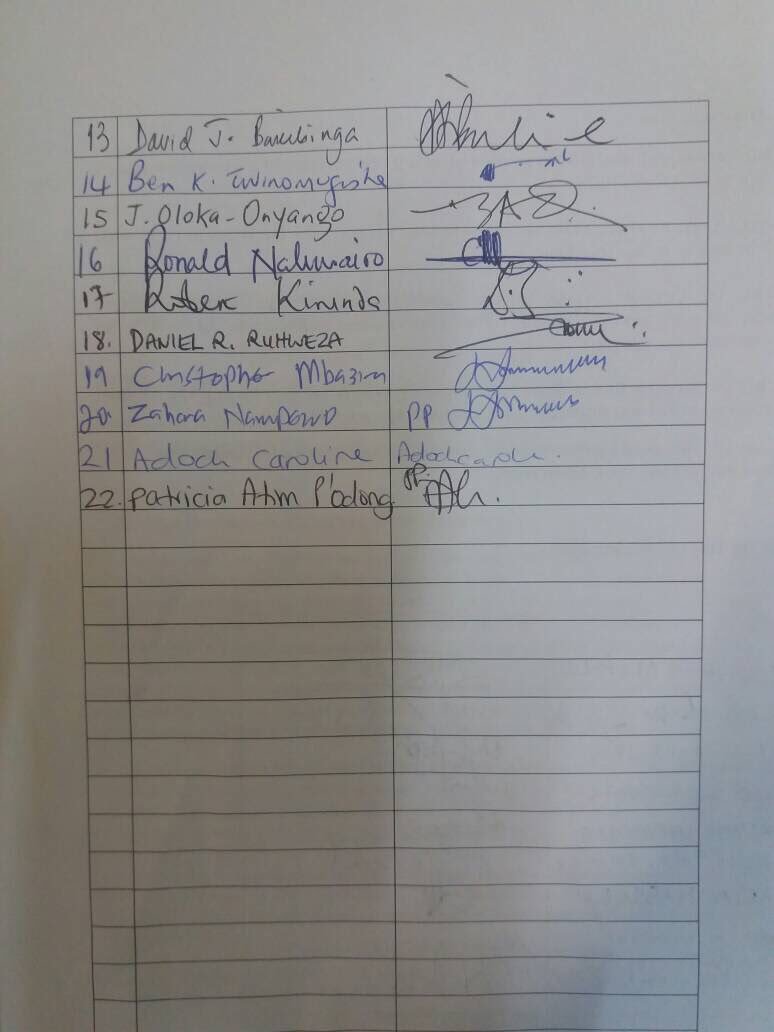 13 David J. Bakibinga
14 Ben K. Twinomugisha
15 J. Oloka-Onyango
16 Ronald Naluwairo
17 Robert Kirunda
18. DANIEL R. RUHWEZA
19 Christopher Mbazira
20 Zahara Nampewo PP
21 Adoch Caroline Adochcarol.
22. Patricia Atim P'odong pp.